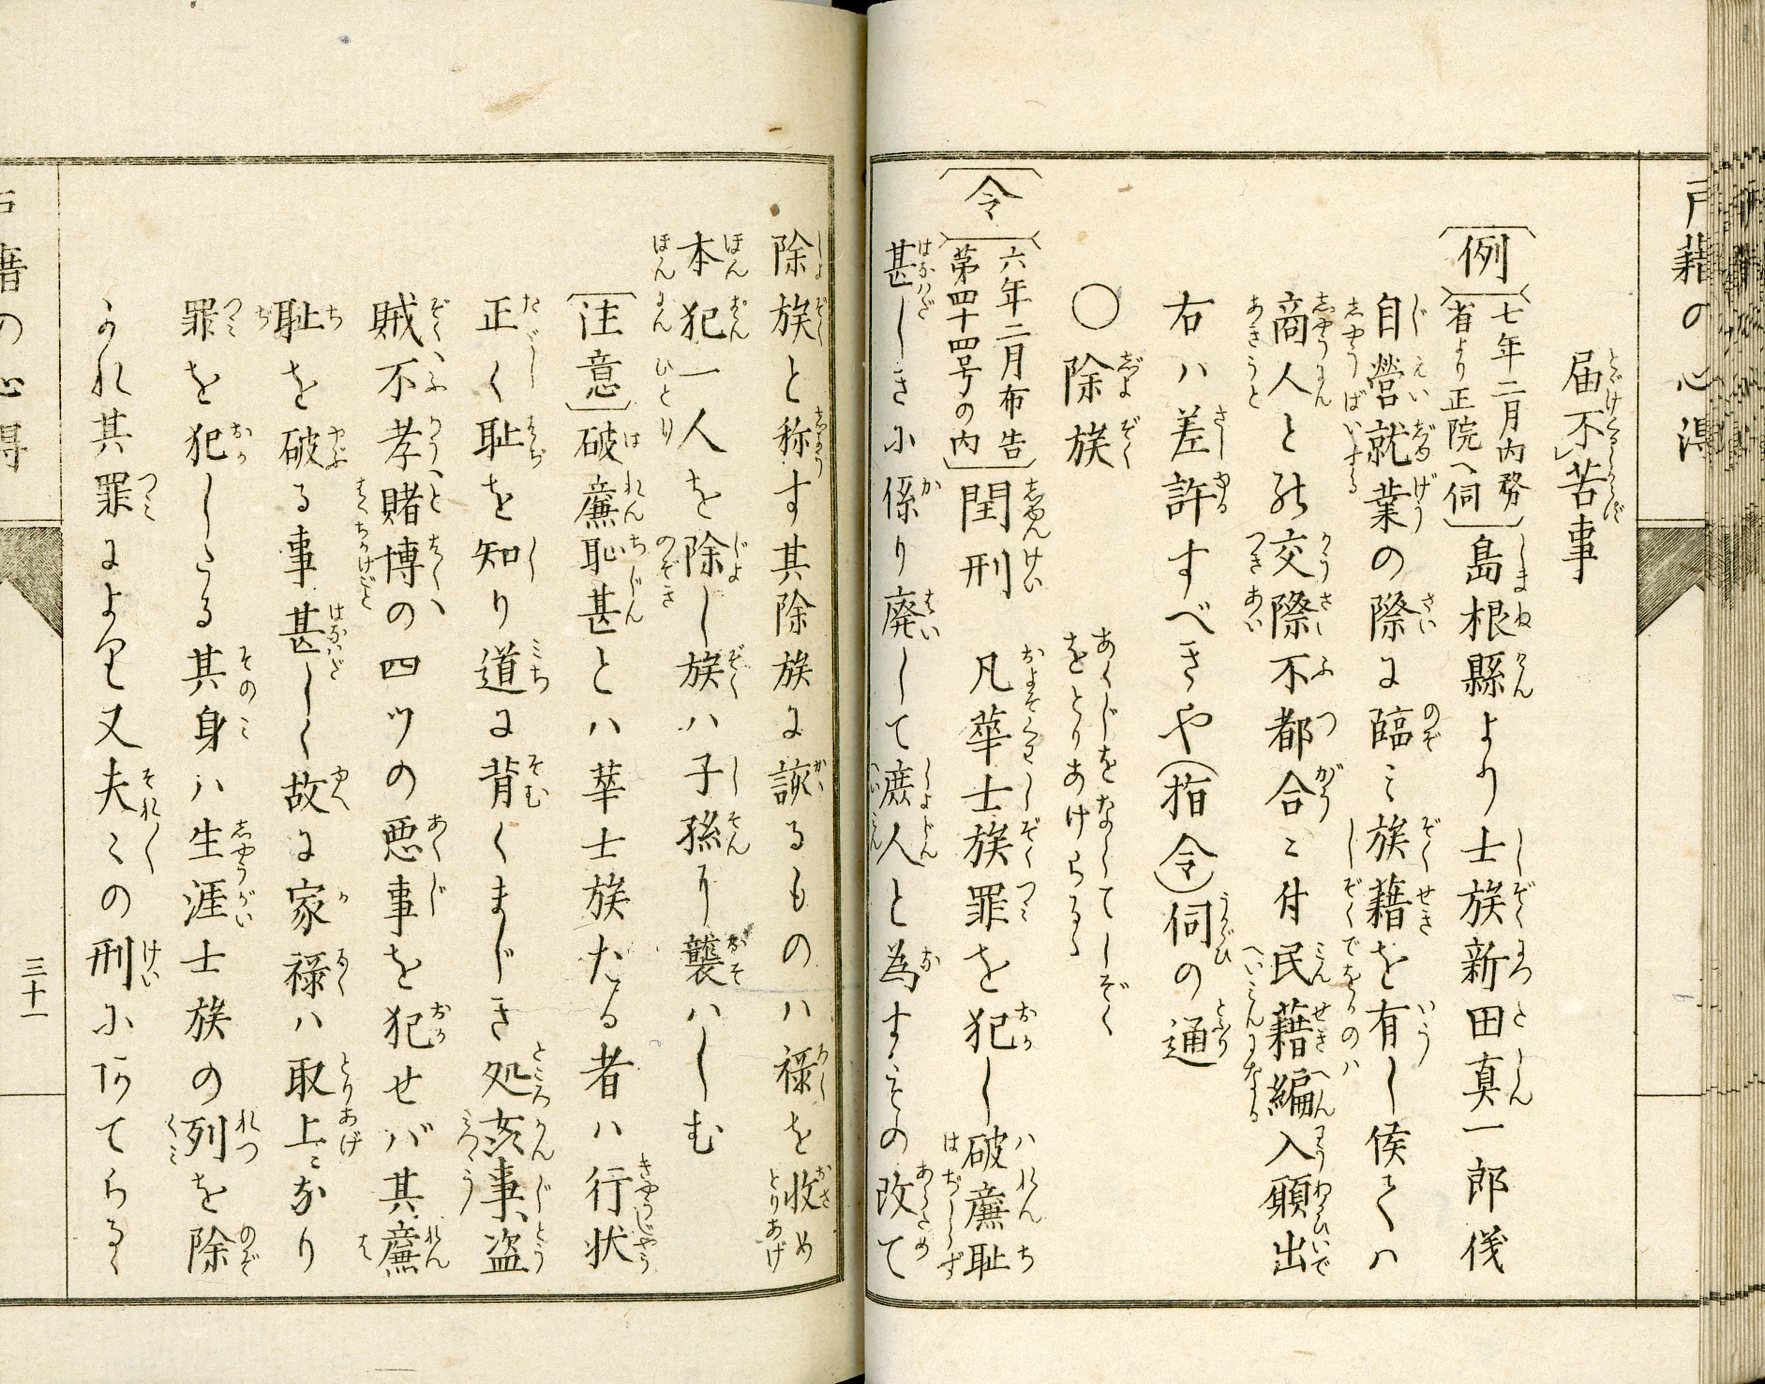 戸籍の心得
届不苦事
例 七年二月内務省より正院へ伺 島根縣より士族新田真一郎儀
自營就業の際に臨ミ族籍を有し候てハ
商人との交際不都合ニ付民籍編入願出
右ハ差許すべきや（指令）伺の通
〇除族 あくじをなしてしぞくをとりあげらるゝ
令 六年二月布告第四十四号の内 閏刑 凡華士族罪を犯し破廉耻
甚しきに係り廃して庶人と為すその改て
除族と称す其除族に該るものハ禄を收め
本犯一人を除し族ハ子孫り襲ハしむ
注意 破廉恥甚とハ華士族たる者ハ行状
正く耻を知り道に背くまじき処亥事、盗
賊、不孝、賭博の四ツの悪事を犯せバ其廉
耻を破る事甚しく故に家禄ハ取上ゝなり
罪を犯したる其身ハ生涯士族の列を除
かれ其罪により又夫々の刑にあてらるゝ
戸籍の心得
三十一